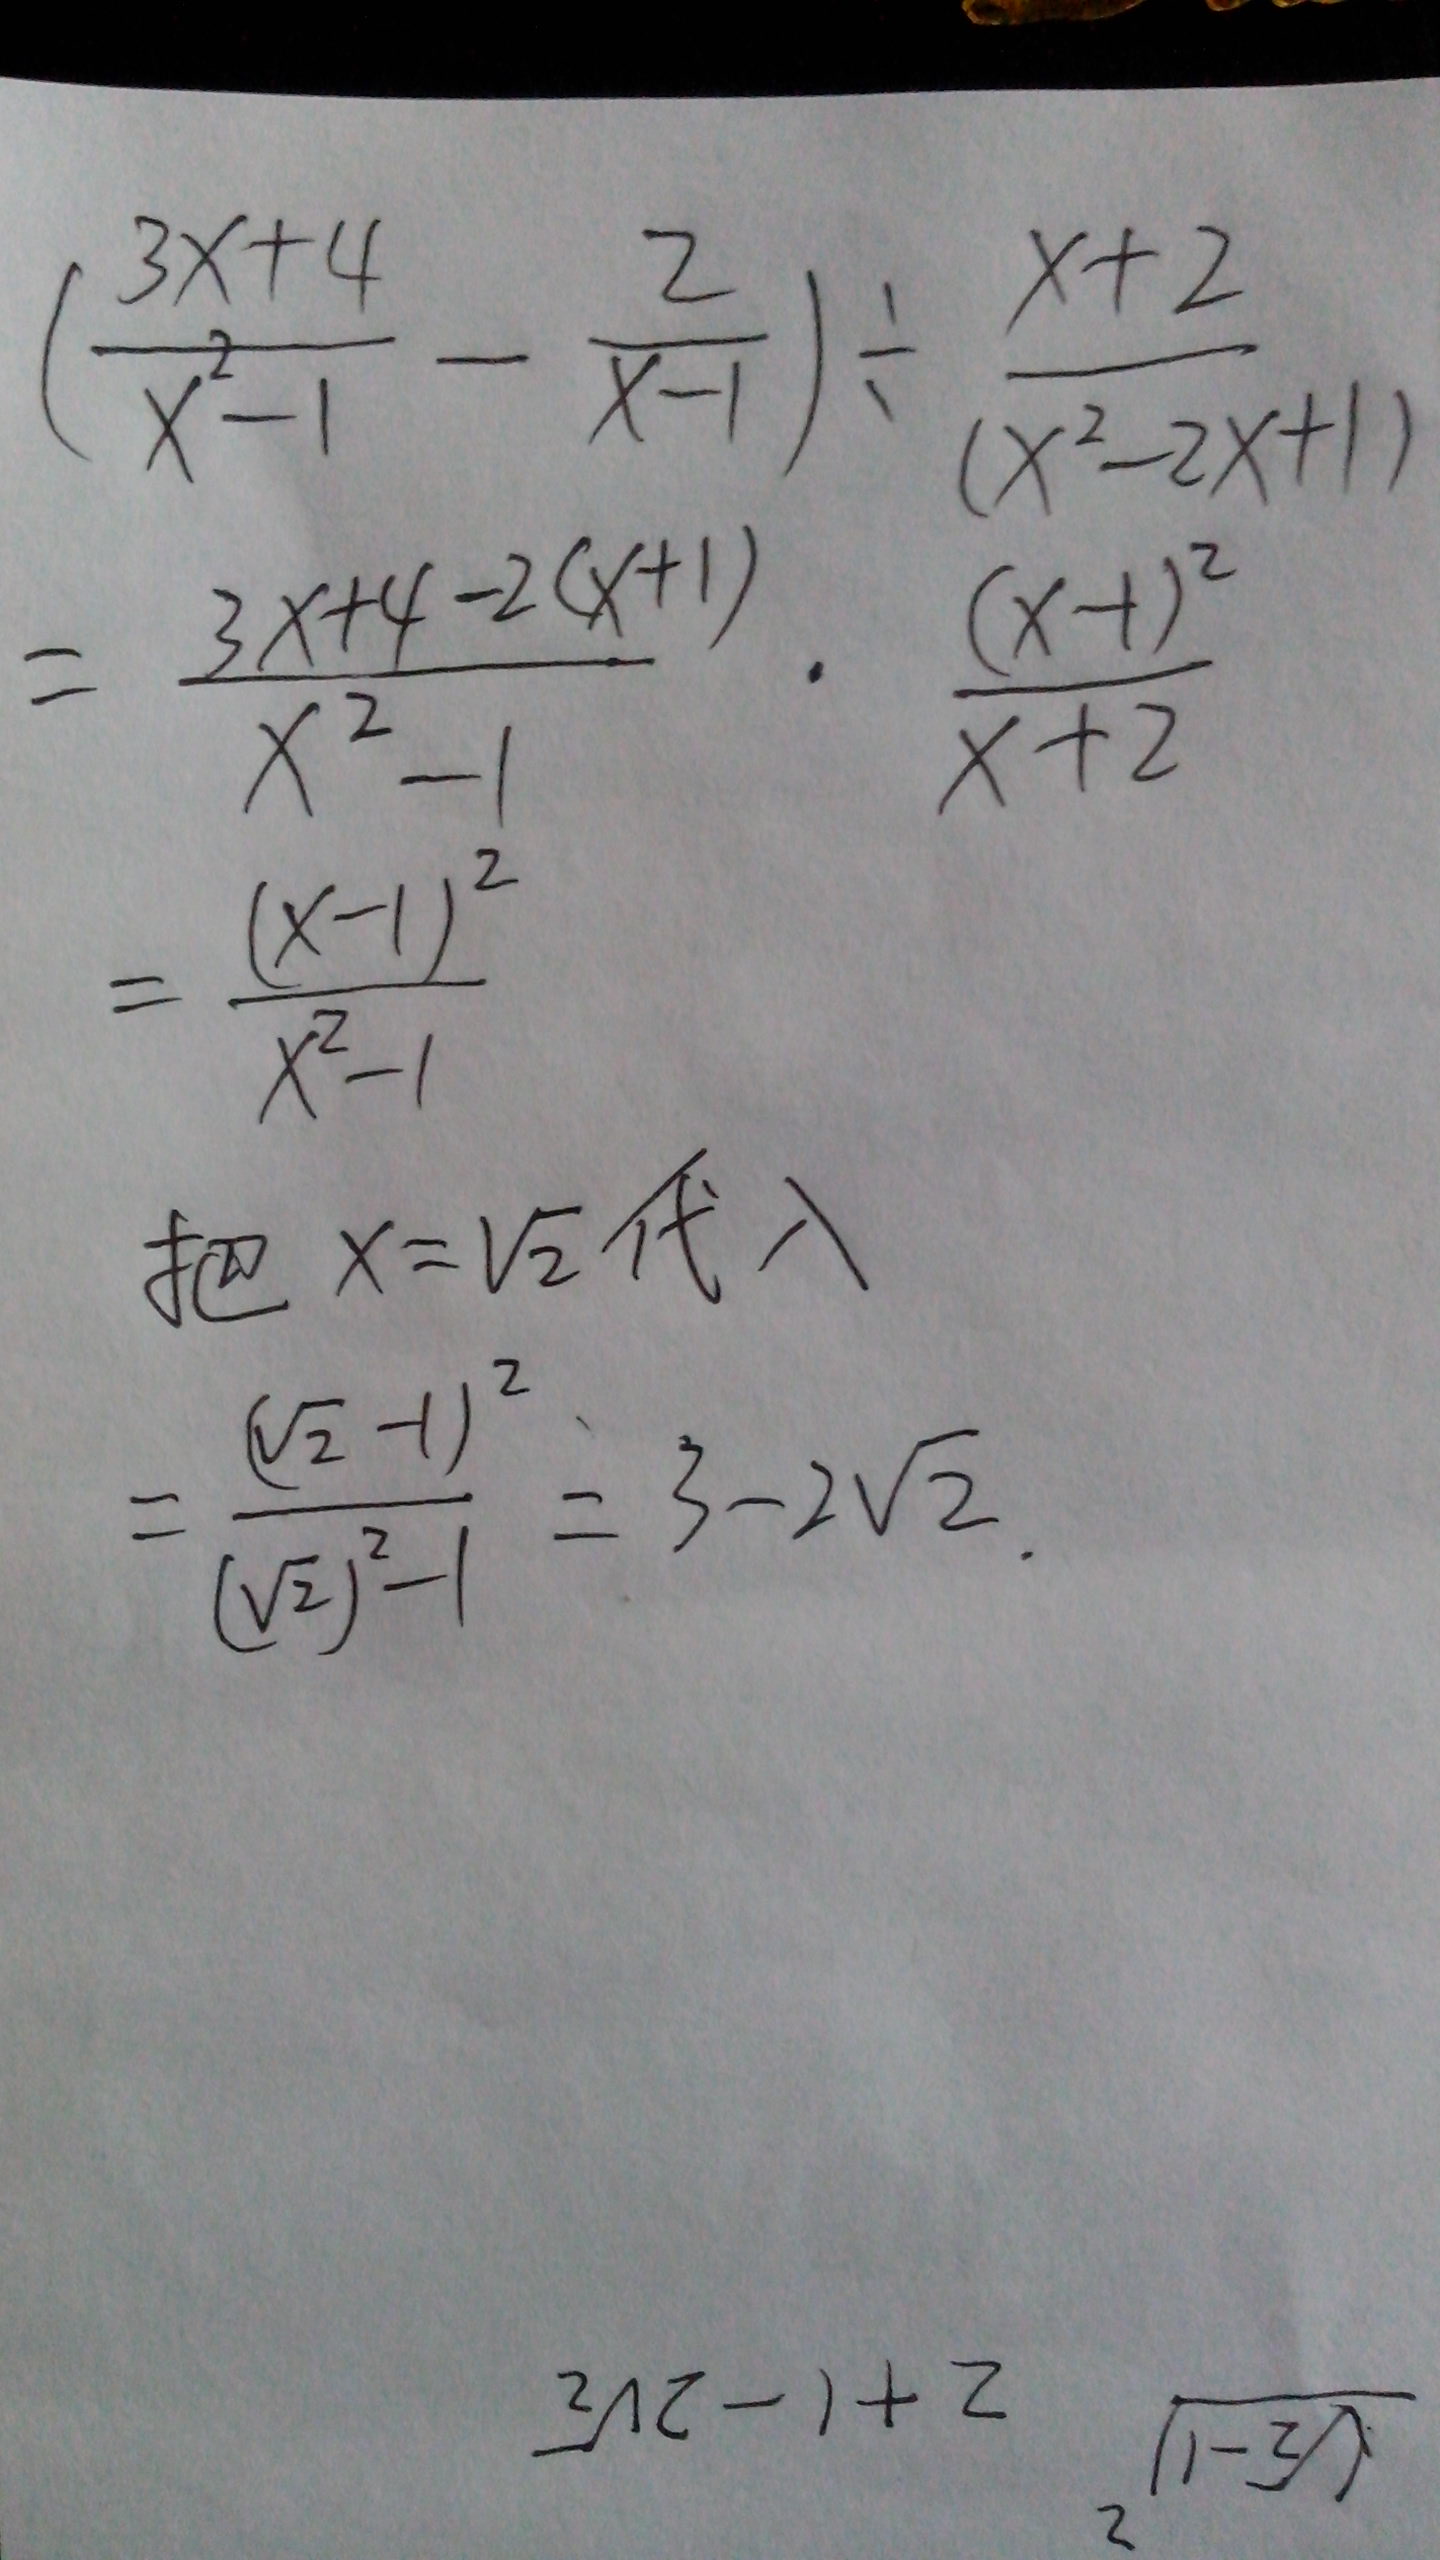 (3x+4/x²-1 - 2/x-1) ÷ x+2/(x²-2x+1)
= 3x+4-2(x+1)/x²-1 · (x-1)²/x+2
= (x-1)²/x²-1
把 x=√2 代入
= (√2-1)²/(√2)²-1 = 3-2√2.